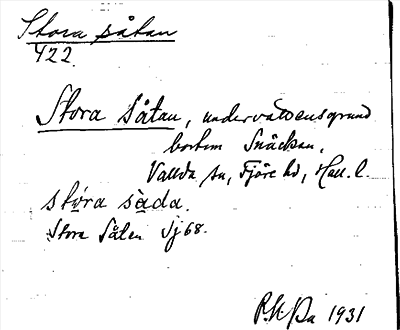 Stora såtan
422.
Stora Såtan, undervattensgrund
bortom Snäckan,
Vallda sn, Fjäre hd, Hall. l.
stóra sàda.
Stora Såten Sj 68.
1931